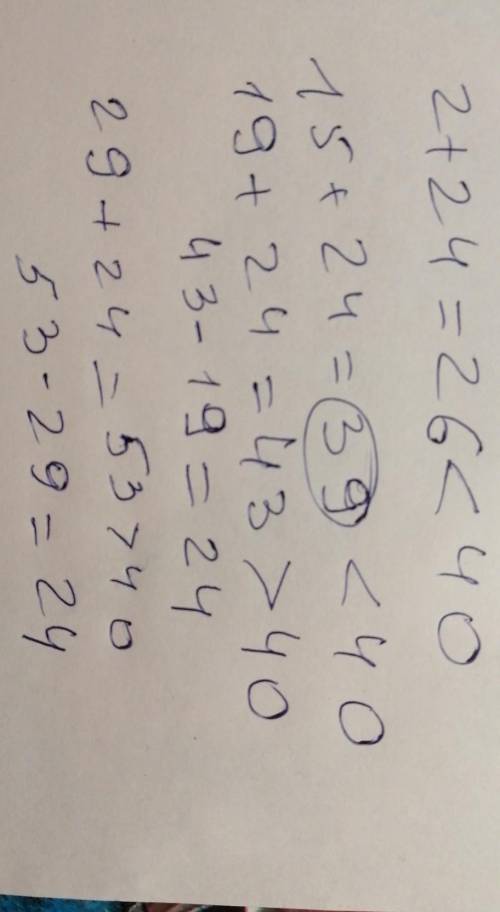 2+24=26<40
15+24=39<40
19+24=43>40
43-19=24
29+24=53>40
53-29=24